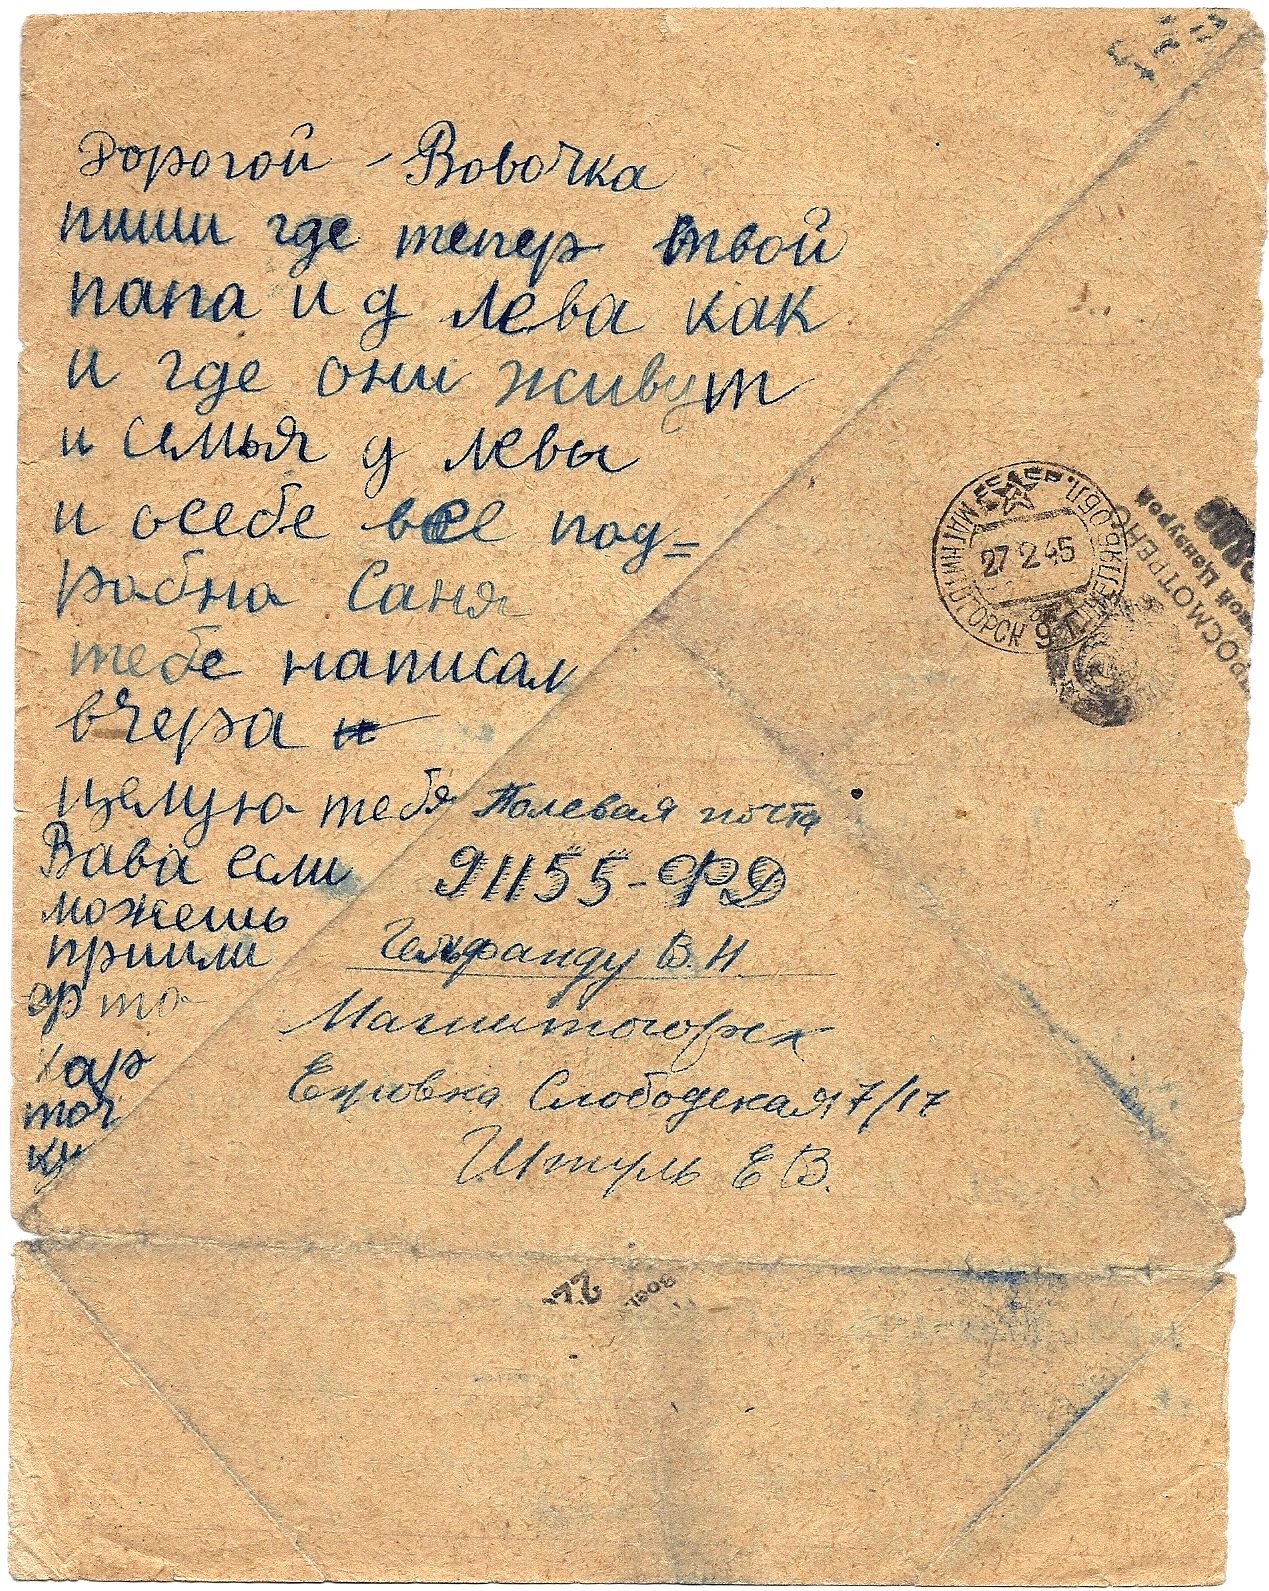 Дорогой - Вовочка
пиши где тепер твой
папа и д лева как
и где они живут
и семья д левы
и осебе все под=
рабна Саня
тебе написал
вчера
целую тебя
Вава если
можешь
пришли
фрто
кар
точ
ку
Полевая почта
91155-ФД
Гельфанду В.Н.
Магнитогорск
Ежовка Слободская 7/17
Штуль Е В.
МАГНИТОГОРСК 9 ЧЕЛЯБИНСК. ОБЛ.
27 2 45
ПРОСМОТРЕНО
Военной Цензурой